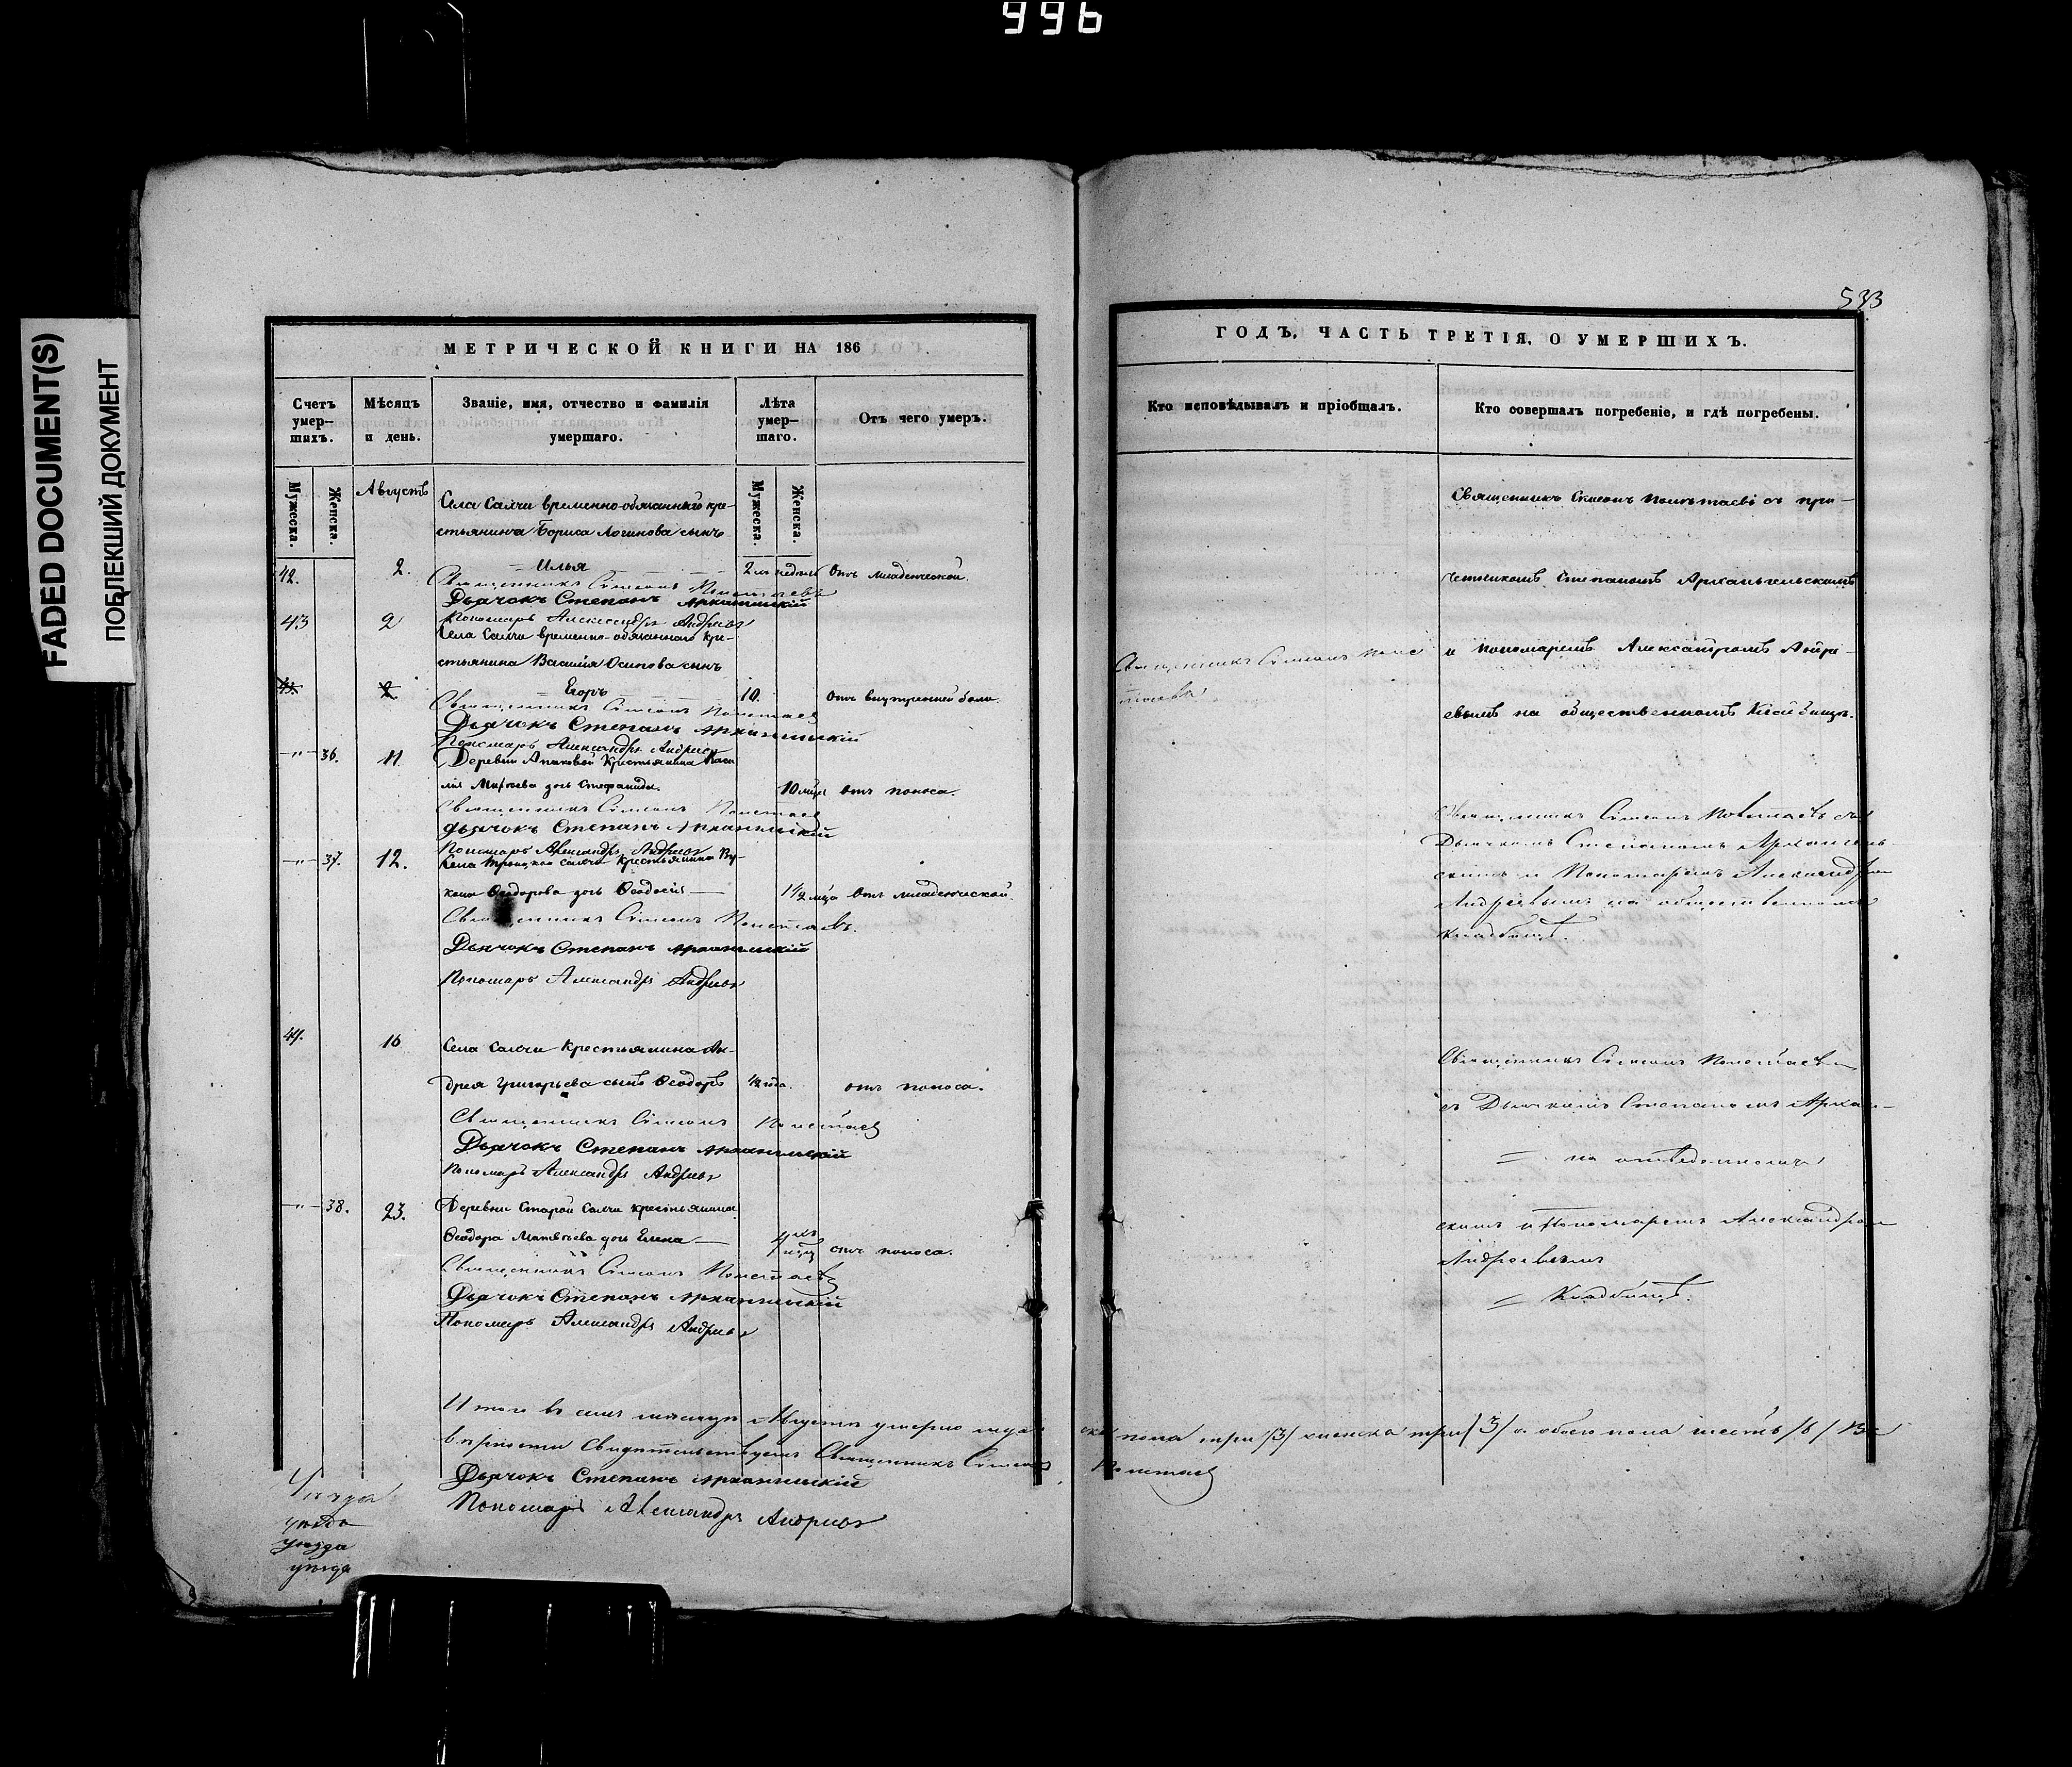 996
FADED DOCUMENT(S)
ПОБЛЕКШИЙ ДОКУМЕНТ
533
МЕТРИЧЕСКОЙ КНИГИ НА 186
Счетъ умер-шихъ.
Мѣсяцъ и день.
Званіе, имя, отчество и фамилія умершаго.
Лѣта умер-шаго.
Отъ чего умеръ.
Мужеска.
Женска.
Мужеска.
Женска.
Августъ
Села Салчи временно-обязаннаго кре-
стьянина Бориса Логинова сынъ
42. 2. Илья 2хъ недѣль Отъ младенческой.
Священникъ Симеонъ
Дьячокъ Степанъ Архангельскій
Пономарь Александръ Андреевъ
43 2 Села Салчи временно-обязаннаго кре-
стьянина Василія Осипова сынъ
Егоръ 10. Отъ внутренней боли.
Священникъ Симеонъ
Дьячокъ Степанъ Архангельскій
Пономарь Александръ Андреевъ
36. 11. Деревни крестьянина
дочь Стефанида. 10 отъ поноса.
Священникъ Симеонъ
Дьячокъ Степанъ Архангельскій
Пономарь Александръ Андреевъ
37. 12. Села Салчи крестьянина
Ѳеодорова дочь Ѳеодосія 1½ Отъ младенческой.
Священникъ Симеонъ
Дьячокъ Степанъ Архангельскій
Пономарь Александръ Андреевъ
44. 16 Села Салчи крестьянина Ан-
дрея Григорьева сынъ Ѳеодоръ ½ года. отъ поноса.
Священникъ Симеонъ
Дьячокъ Степанъ Архангельскій
Пономарь Александръ Андреевъ
38. 23. Деревни Старой Салчи крестьянина
Ѳеодора Матвѣева дочь Елена 4хъ отъ поноса.
Священникъ Симеонъ
Дьячокъ Степанъ Архангельскій
Пономарь Александръ Андреевъ
Итого въ семъ мѣсяцѣ Августѣ умерло муже
вѣрности свидѣтельствуемъ Священникъ Симеонъ
Дьячокъ Степанъ Архангельскій
Пономарь Александръ Андреевъ
уѣзда
уѣзда
ГОДЪ, ЧАСТЬ ТРЕТІЯ, О УМЕРШИХЪ.
Кто исповѣдывалъ и пріобщалъ.
Кто совершалъ погребеніе, и гдѣ погребены.
Священникъ Симеонъ
Священникъ Симеонъ съ при-
четникомъ Степаномъ Архангельскимъ
и пономаремъ Александромъ Андре-
евымъ на общественномъ кладбищѣ.
Священникъ Симеонъ съ
Дьячкомъ Степаномъ Архангель-
скимъ и Пономаремъ Александромъ
Андреевымъ на общественномъ
кладбищѣ.
Священникъ Симеонъ
съ Дьячкомъ Степаномъ Архан-
на
скимъ и Пономаремъ Александромъ
Андреевымъ
кладбищѣ.
ска пола три /3/ женска три /3/ а обоего пола шесть /6/ Въ